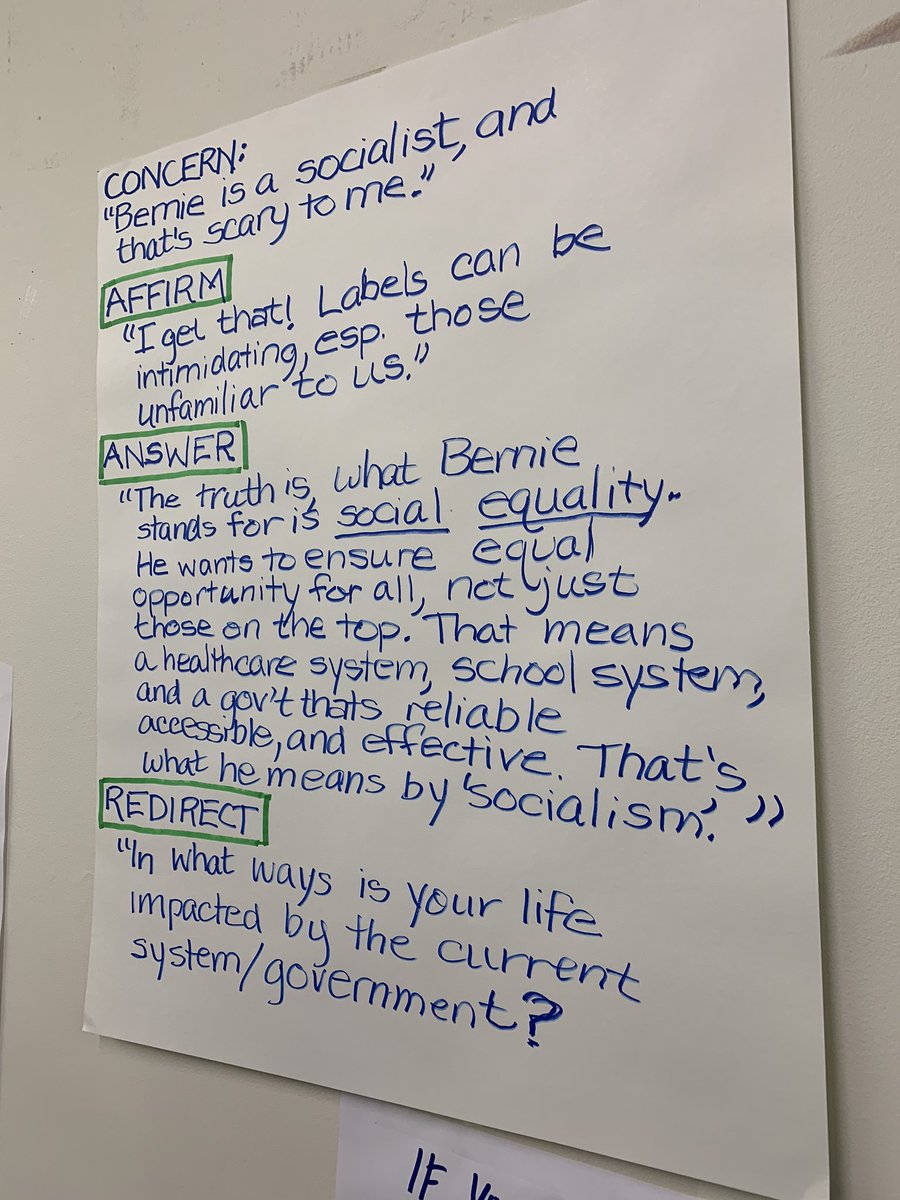 CONCERN:
"Bernie is a socialist, and
that's scary to me."
AFFIRM
"I get that! Labels can be
intimidating, esp. those
unfamiliar to us."
ANSWER
"The truth is, what Bernie
stands for is social equality.
He wants to ensure equal
opportunity for all, not just
those on the top. That means
a healthcare system, school system,
and a gov't thats reliable
accessible, and effective. That's
what he means by 'socialism'."
REDIRECT
"In what ways is your life
impacted by the current
system/government?
IF